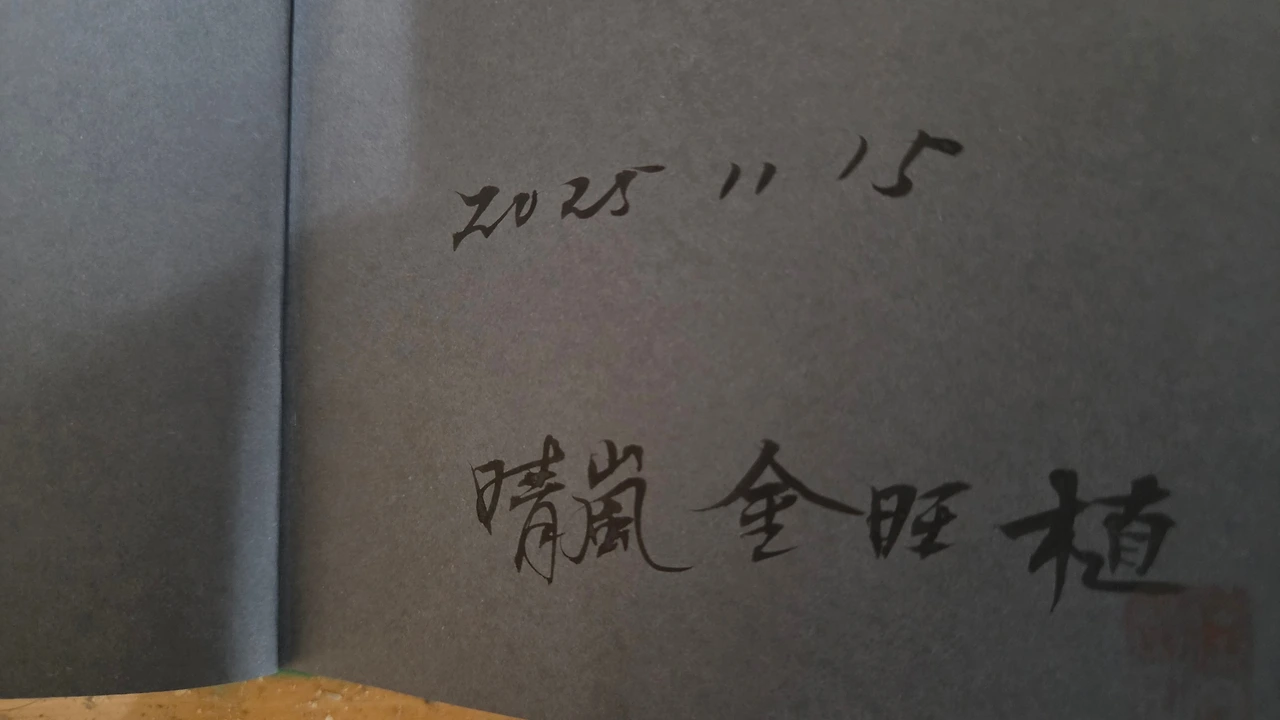 2025 11 15
晴嵐 金旺植